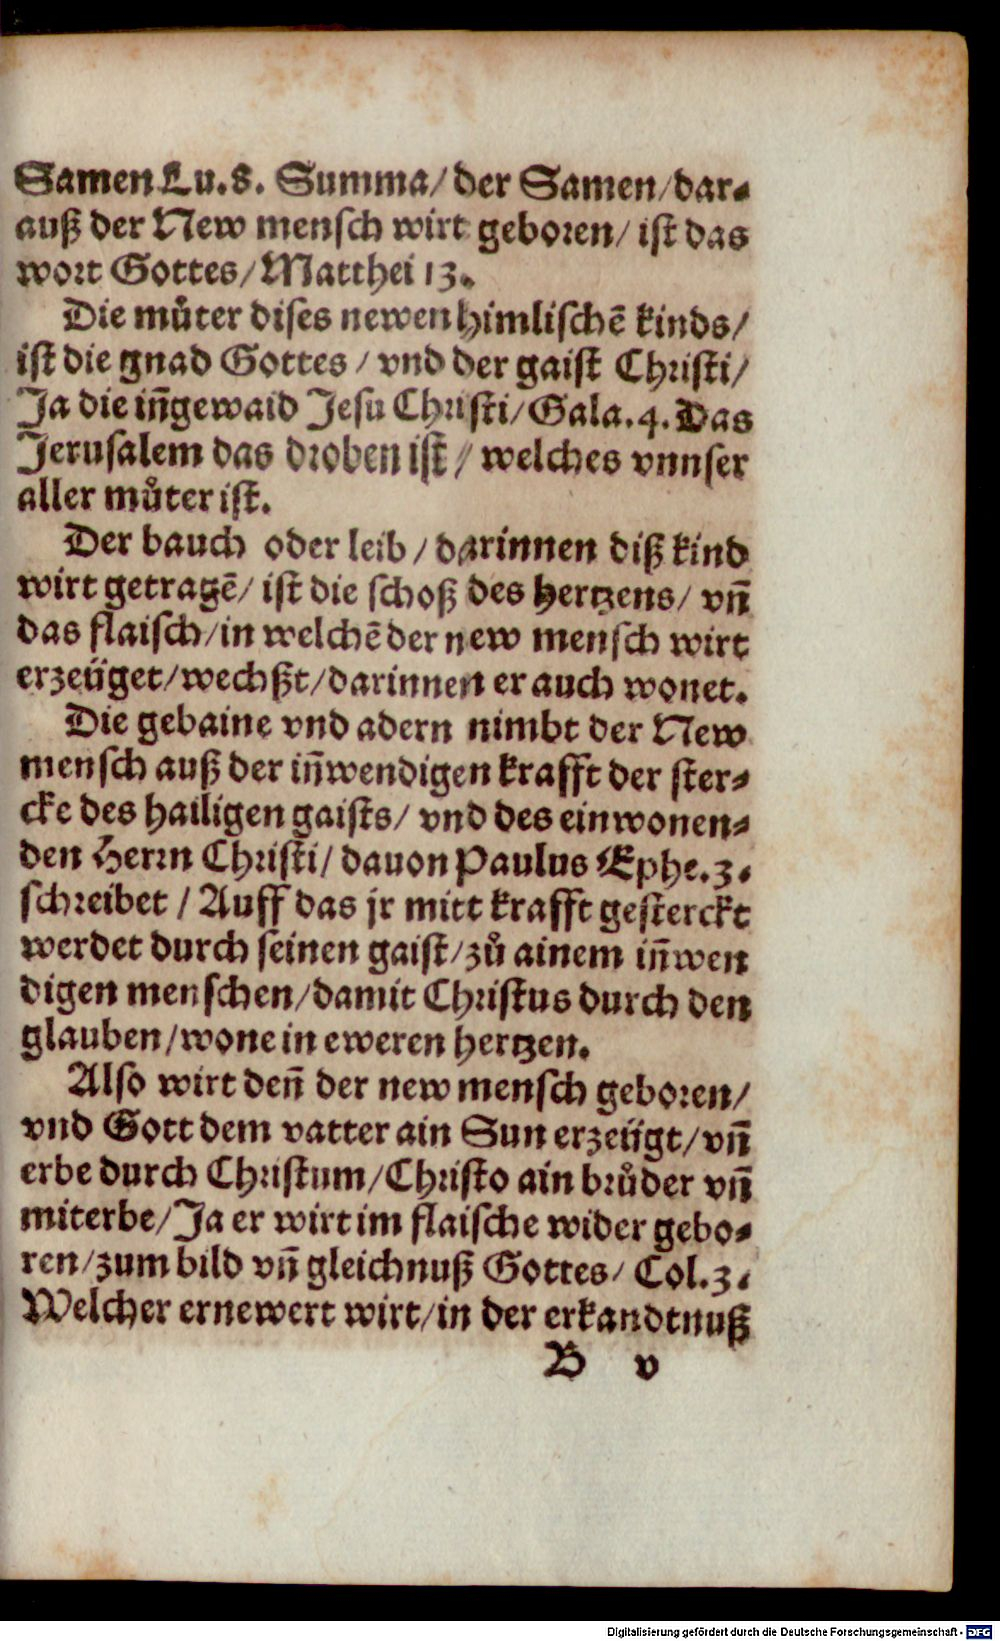 Samen Lu. 8. Summa/ der Samen/ dar⸗
auß der New mensch wirt geboren/ ist das
wort Gottes/ Matthei 13.
Die můter dises newen himlischē kinds/
ist die gnad Gottes / vnd der gaist Christi/
Ja die iñgewaid Jesu Christi/ Gala. 4. Das
Jerusalem das droben ist / welches vnnser
aller můter ist.
Der bauch oder leib / darinnen diß kind
wirt getragē/ ist die schoß des hertzens/ vñ
das flaisch/ in welchē der new mensch wirt
erzeüget/ wechßt/ darinnen er auch wonet.
Die gebaine vnd adern nimbt der New
mensch auß der iñwendigen krafft der ster⸗
cke des hailigen gaists/ vnd des einwonen⸗
den Herrn Christi/ dauon Paulus Ephe. 3.
schreibet / Auff das jr mitt krafft gesterckt
werdet durch seinen gaist/ zů ainem iñwen
digen menschen/ damit Christus durch den
glauben/ wone in eweren hertzen.
Also wirt deñ der new mensch geboren/
vnd Gott dem vatter ain Sun erzeügt/ vñ
erbe durch Christum/ Christo ain brůder vñ
miterbe/ Ja er wirt im flaische wider gebo⸗
ren/ zum bild vñ gleichnuß Gottes/ Col. 3.
Welcher ernewert wirt/ in der erkandtnuß
B v
Digitalisierung gefördert durch die Deutsche Forschungsgemeinschaft - DFG